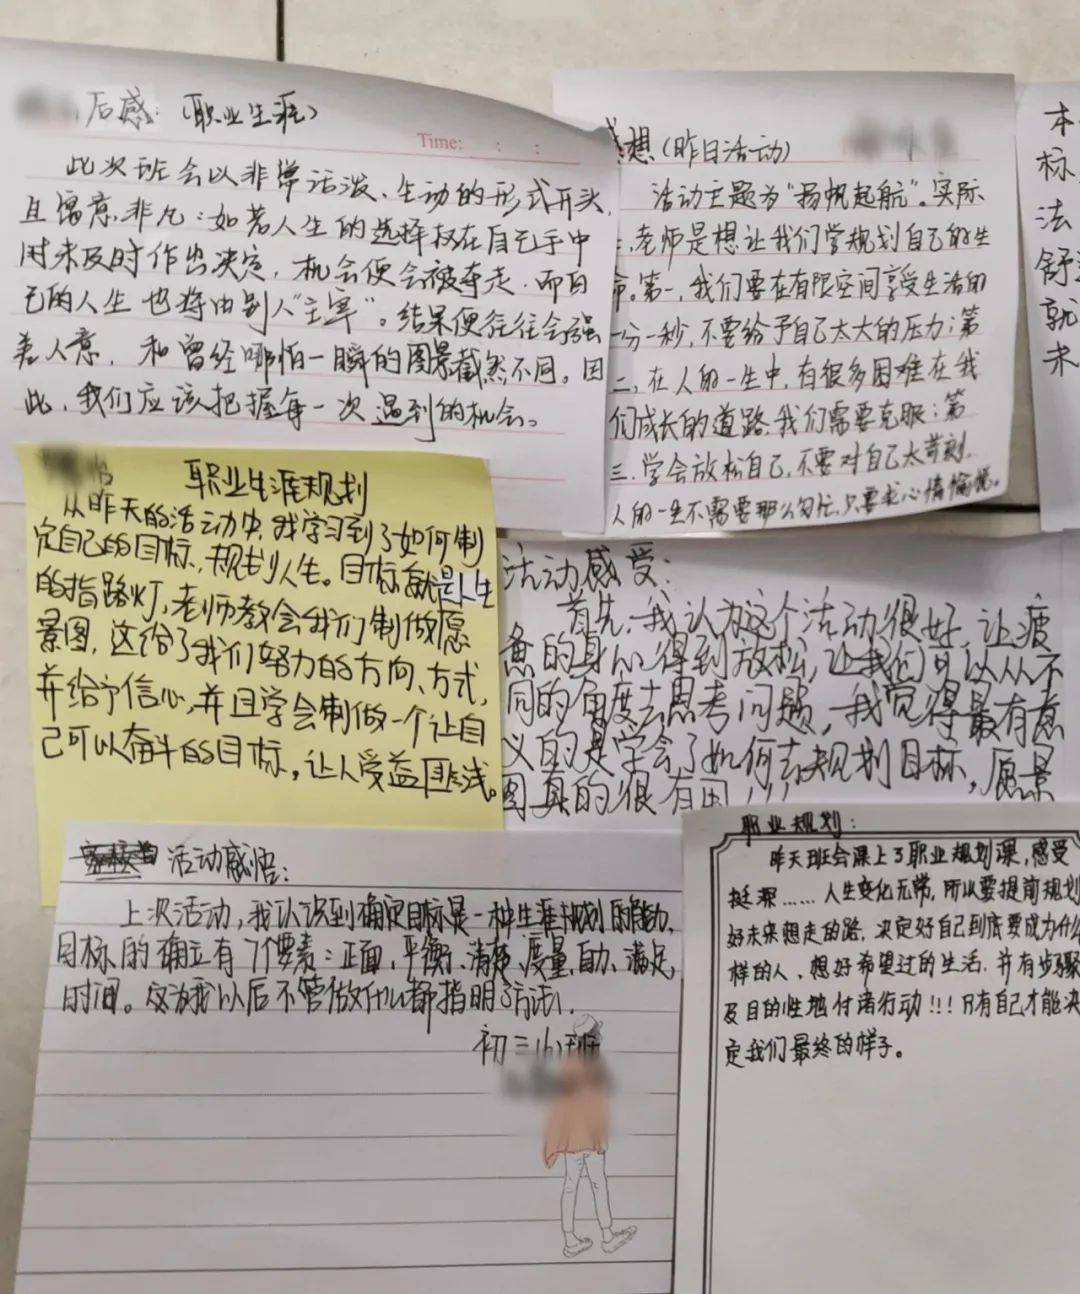 后感:(职业生涯)
Time: : :
此次班会以非常活泼、生动的形式开头,
且寓意非凡:如若人生的选择权在自己手中
时未及时作出决定,机会便会被夺走,而自
己的人生也将由别人“主宰”。结果便往往会强
差人意,和曾经哪怕一瞬的图景截然不同。因
此,我们应该把握每一次遇到的机会。
感想(昨日活动)
活动主题为“扬帆起航”。实际
,老师是想让我们学规划自己的生
命。第一,我们要在有限空间享受生活的
一分一秒,不要给予自己太大的压力;第
二,在人的一生中,有很多困难在我
们成长的道路,我们需要克服;第
三,学会放松自己,不要对自己太苛刻,
人的一生不需要那么匆忙,只要求心情愉悦。
本
标,
法
舒
就
未
职业生涯规划
从昨天的活动中,我学习到了如何制
定自己的目标,规划人生。目标就是人生
的指路灯,老师教会我们制做愿
景图,这给了我们努力的方向、方式,
并给予信心,并且学会制做一个让自
己可以奋斗的目标,让人受益匪浅。
活动感受:
首先,我认为这个活动很好,让疲
惫的身心得到放松,让我们可以从不
同的角度去思考问题,我觉得最有意
义的是学会了如何去规划目标,愿景
图真的很有用!!!
活动感悟:
上次活动,我认识到确定目标是一种生涯规划的能力,
目标的确立有7个要素:正面、平衡、清楚、度量、自助、满足、
时间。这为我以后不管做什么都指明了方法!
初三(6)班
职业规划:
昨天班会课上了职业规划课,感受
挺深……人生变化无常,所以要提前规划
好未来想走的路,决定好自己到底要成为什么
样的人,想好希望过的生活,并有步骤
及目的性地付诸行动!!!只有自己才能决
定我们最终的样子。